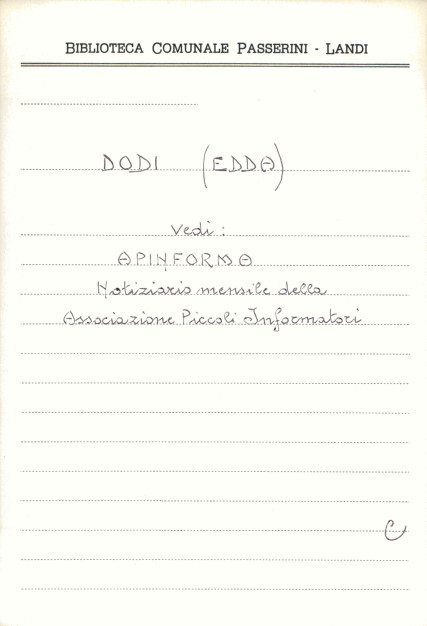 BIBLIOTECA COMUNALE PASSERINI - LANDI
DODI (EDDA)
Vedi :
APINFORMA
Notiziario mensile della
Associazione Piccoli Informatori
C